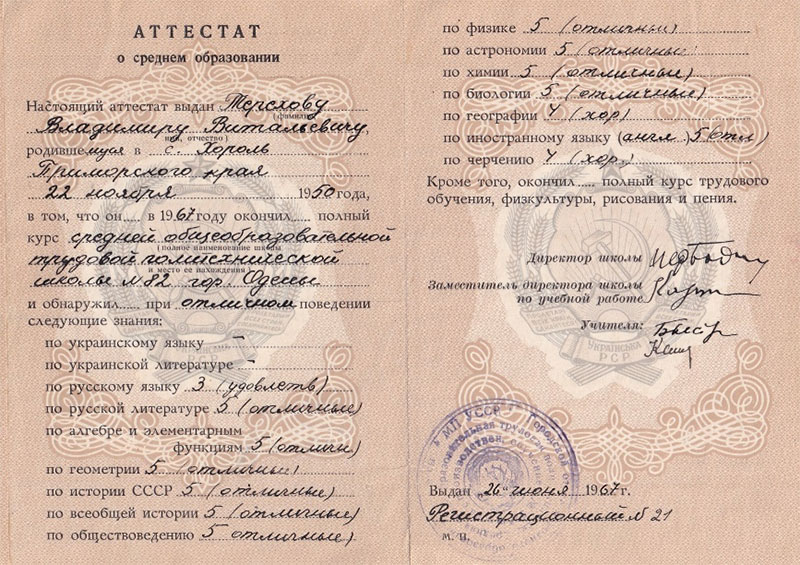 АТТЕСТАТ
о среднем образовании
Настоящий аттестат выдан Терехову
(фамилия,
Владимиру Витальевичу,
имя, отчество)
родившемуся в с. Хороль
Приморского края
22 ноября 1950 года,
в том, что он в 1967 году окончил полный
курс средней общеобразовательной
(полное наименование школы
трудовой политехнической
и место ее нахождения)
школы №82 гор. Одессы
и обнаружил при отличном поведении
следующие знания:
по украинскому языку —
по украинской литературе —
по русскому языку 3 (удовлетв)
по русской литературе 5 (отличные)
по алгебре и элементарным
функциям 5 (отличн)
по геометрии 5 (отличные)
по истории СССР 5 (отличные)
по всеобщей истории 5 (отличные)
по обществоведению 5 отличные)
по физике 5 (отличные)
по астрономии 5 (отличные
по химии 5 (отличные)
по биологии 5 (отличные)
по географии 4 (хор)
по иностранному языку (англ.) 5 (отл)
по черчению 4 (хор.)
Кроме того, окончил полный курс трудового
обучения, физкультуры, рисования и пения.
Директор школы
Заместитель директора школы
по учебной работе
Учителя:
УКРАЇНСЬКА
РСР
МП УССР
Выдан 26 июня 1967 г.
Регистрационный № 21
М. П.